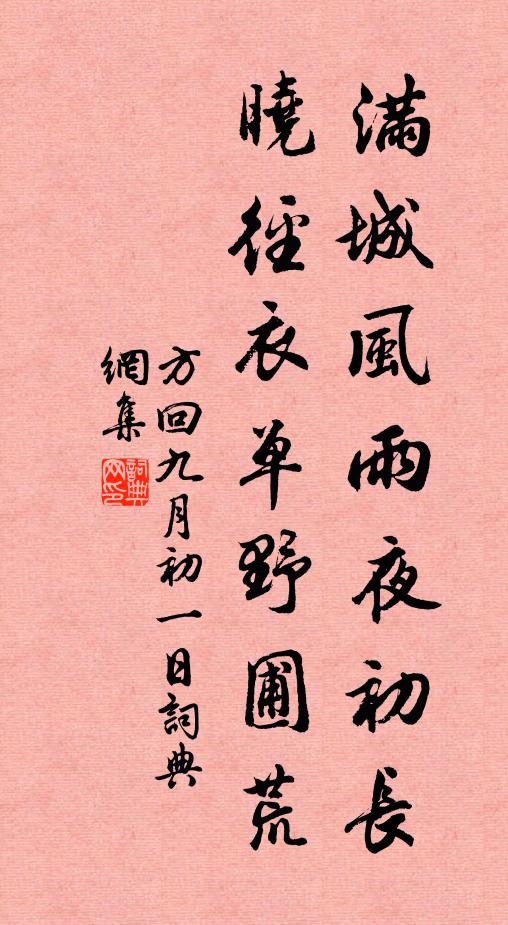 滿城風雨夜初長
曉徑衣単野圃荒
方回九月初一日詞典
網集
詞典
网印